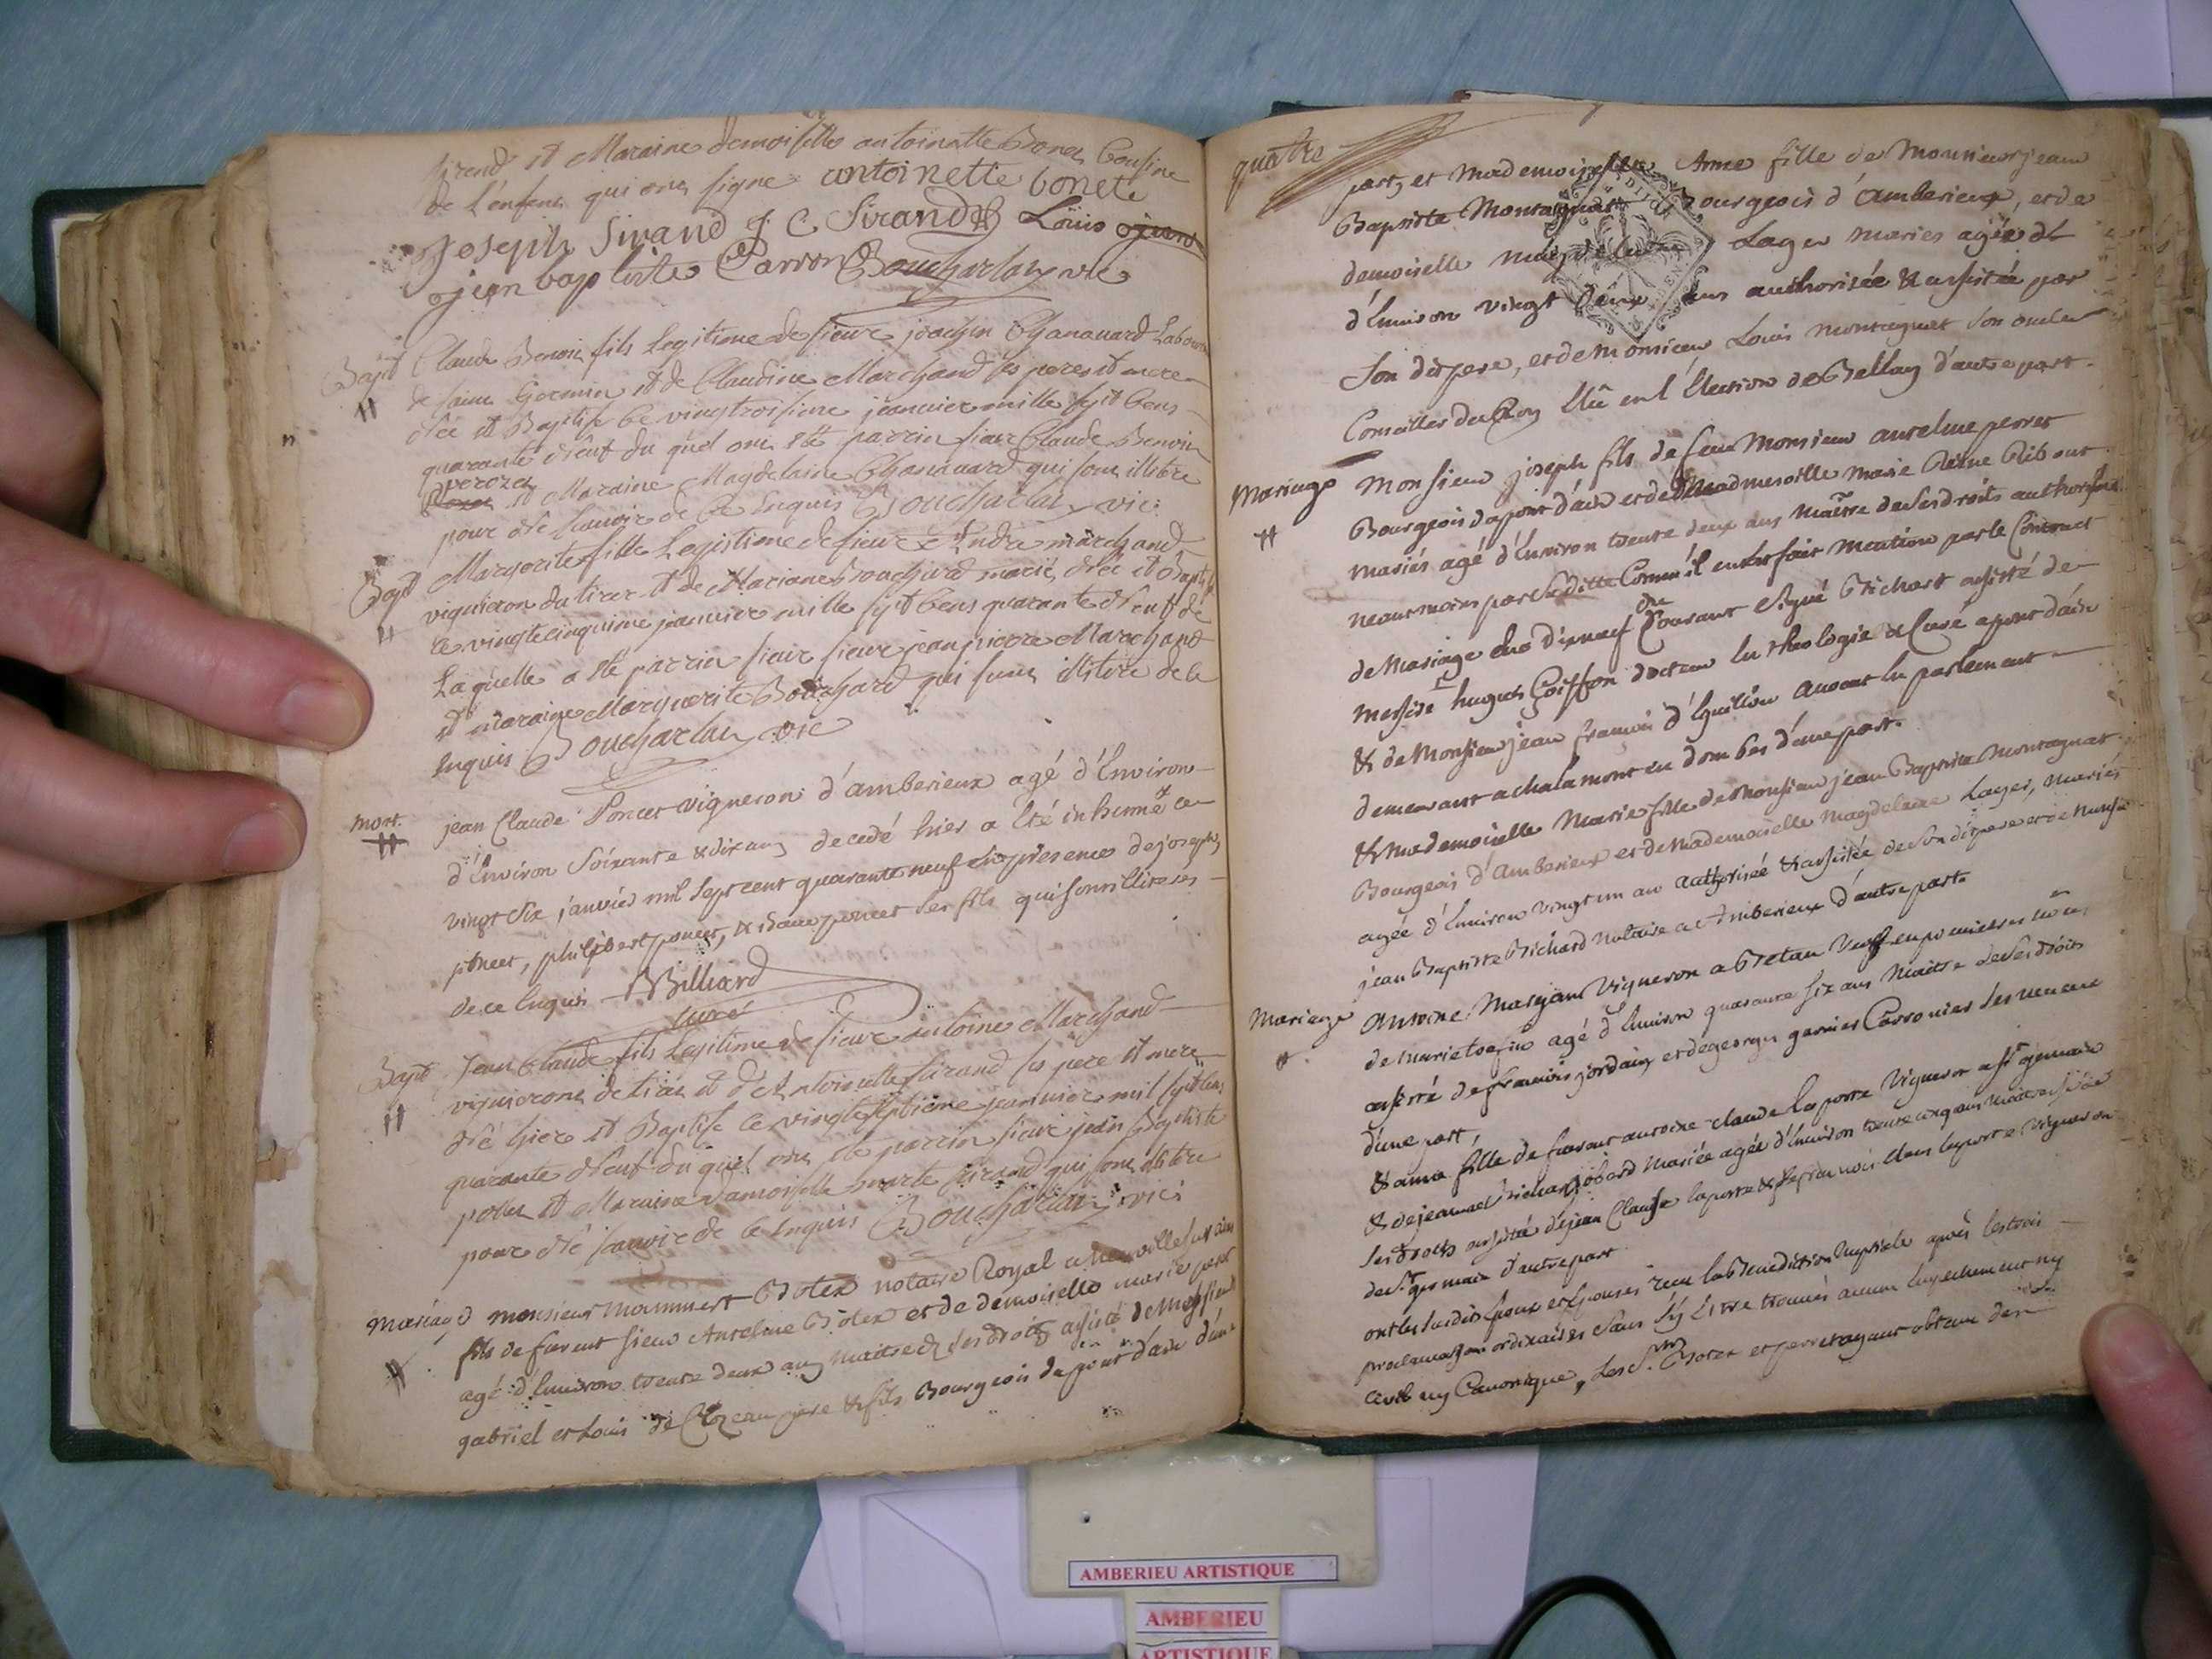 et Maraine demoiselle antoinette Bonet Cousine
de l'enfent qui ont signe antoinette bonete
Joseph Sirand J C Sirand Louis
jean baptiste Carron Boucharlat vic
Bapt Claude Benoit fils Legitime de sieur joachin Chanavard Laboureur
de saint Germain et de Claudine Marchand ses peres et mere
née et Baptisé ce vingtroisieme jeanvier mille sept Cens
quarante neuf du quel ont eté parrin sieur Claude Benoit
perozet et Maraine Magdelaine Chanavard qui sont illitere
pour de ce Enquis Boucharlat vic:
Bapt Margerite fille Legistime de sieur Andre marchand
vigneron du tiret et de Mariane Bouchard mariés née et Baptisé
ce vingtecinquieme jeanvier mille sept Cens quarante neuf de
Laquelle a eté parrin sieur sieur jean pierre Marchand
et maraine Marguerite Bouchard qui sunt illitere de ce
Enquis Boucharlat vic
mort. jean Claude Poncet vigneron d'amberieux agé d'Environ
d'Environ Soixante & dix ans decedé hier a Eté inhumé ce
vingt Six janvier mil Sept cent quarante neuf En presence de joseph
poncet, philibert poncet, & poncet Ses fils qui sont illiteres
de ce Enquis Billiard
curé
Bapt Jean Claude fils Legitime de sieur antoine Marchand
vigneront de tiret et d'Antoinette Sirand ses pere et mere
né hier et Baptisé ce vingt septieme jeanvier mil sept Cens
quarante neuf du quel ont eté parrin sieur jean Baptiste
et Maraine damoiselle marte Sirand qui sont illitere
pour de ce Enquis Boucharlat vic:
Mariage monsieur Mammert Botex notaire Royal a neuville sur ain
fils de furent sieur Antelme Botex et de demoiselle marie
agé d'Environ trente deux ans maitre de ses droits assisté de Messieurs
gabriel et Louis de Crozeau pere & fils Bourgeois du pont d'ain d'une
quatre
part, et Mademoiselle Anne fille de Monsieur jean
Baptiste Montagnat Bourgeois d'Amberieux, et de
demoiselle Lager maries agée de
d'Environ vingt deux ans authorisée & assistée par
Son dit pere, et de Monsieur Louis montagnat Son oncle
Conseiller du Roy Elû en l'Election de Bellay d'autre part.
Mariage Monsieur joseph fils de feu Monsieur antelme perret
Bourgeois du pont d'ain et de Mademoiselle marie Reine Ribout
mariés agé d'Environ trente deux ans maître de Ses droits authorisé
neanmoins par Comm'il en est fait mention par le Contract
de Mariage du dixneuf du Courant signé Brichard assisté de
messire hugues Goiffon docteur En theologie & Curé a pont d'ain
& de Monsieur jean françois d'Eguillon Avocat En parlement
demeurant a chalamont en dombes d'une part.
& Mademoiselle Marie fille de Monsieur jean Baptiste Montagnat
Bourgeois d'Amberieux et de Mademoiselle Magdelaine Lager, Mariés
agée d'Environ vingt un an authorisée & assistée de Son dit pere et de Monsieur
jean Baptiste Brichard Notaire a Amberieux d'autre part
Mariage Antoine Marjan Vigneron a Bretan Veuf en premieres nôces
de Marie agé d'Environ quarante six ans Maitre de Ses droits
assisté de francois jordain et de george garnier Carronier
d'une part,
& anne fille de furent antoine claude Laporte Vigneron a St germain
& de jeanne Brichard jobard Mariée agée d'Environ trente cinq ans maitresse de
Ses droits assistée de jean Claude laporte & de françois laporte vigneron
de St germain d'autre part
ont les Susdits Epoux et Epouses recu la Benediction Nuptiale après les trois
proclamations ordinaires Sans s'y Estre trouvés aucun Empechement ny
Civil ny Canonique, Les Srs. Botex et perret ayant obtenu
AMBERIEU ARTISTIQUE
AMBERIEU
ARTISTIQUE